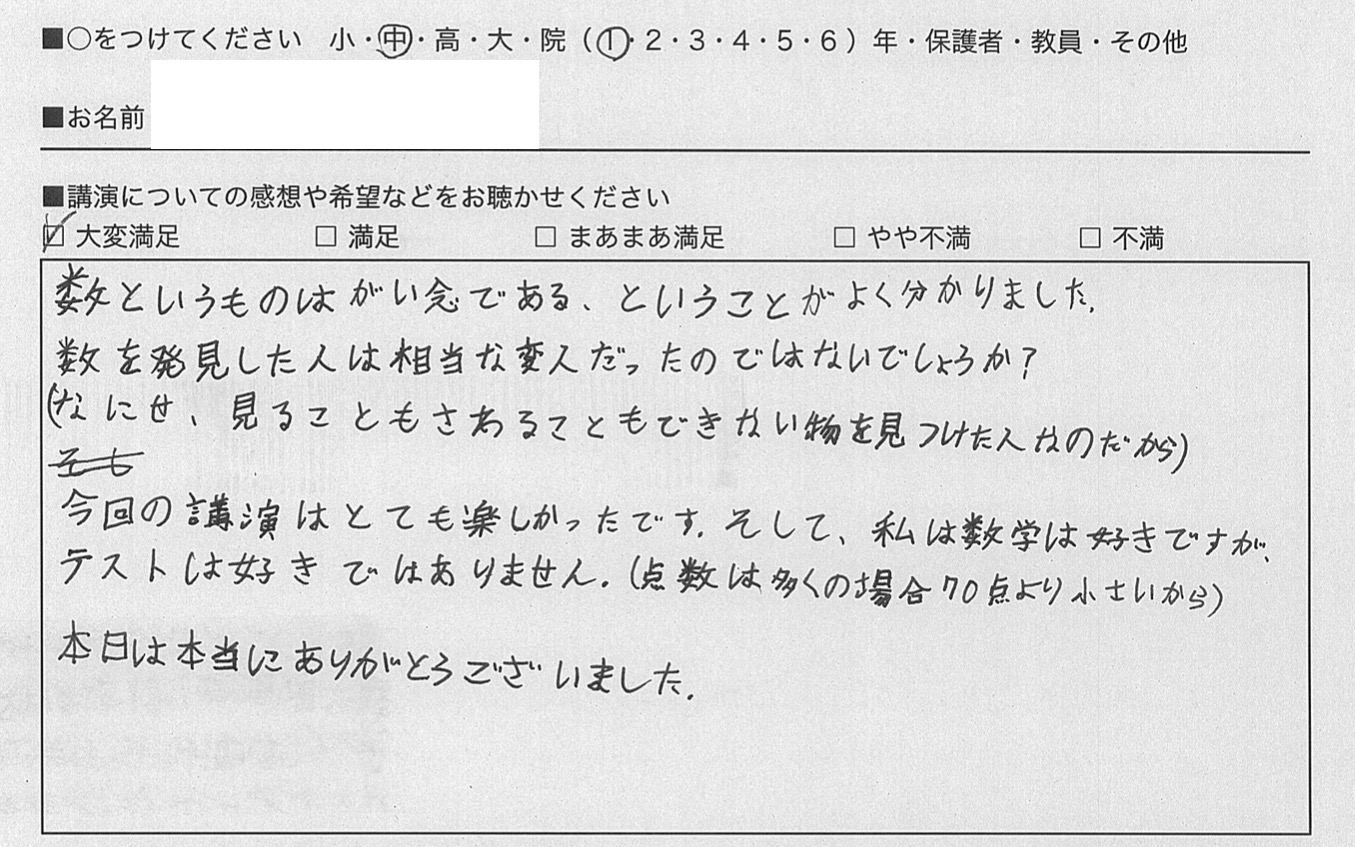 ■○をつけてください 小・中・高・大・院（1・2・3・4・5・6）年・保護者・教員・その他
■お名前
■講演についての感想や希望などをお聴かせください
☑ 大変満足 □ 満足 □ まあまあ満足 □ やや不満 □ 不満
数というものはがい念である、ということがよく分かりました.
数を発見した人は相当な変人だったのではないでしょうか?
(なにせ、見ることもさわることもできない物を見つけた人なのだから)
そも
今回の講演はとても楽しかったです.そして、私は数学は好きですが、
テストは好きではありません.(点数は多くの場合70点より小さいから)
本日は本当にありがとうございました.